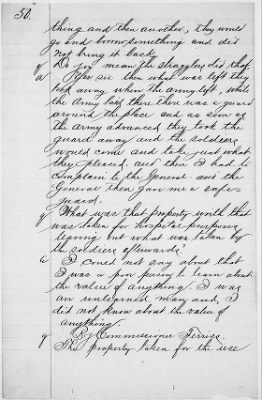 50.
thing and then another, they would
go and borrow something and did
not bring it back.
q Do you mean the stragglers did that
a Yes sir then what was left they
took away when the army left, while
the Army laid there there was a guard
around the place and as soon as
the Army advanced they took the
guard away and the soldiers
would come and take just what
they pleased, and then I had to
complain to the General and the
General then gave me a safe-
guard.
q What was that property worth that
was taken for hospital purposes
leaving out what was taken by
the soldiers afterwards
a I could not say about that
I was a poor person to learn about
the value of anything. I was
an unlearned man and, I
did not know about the value of
anything.
q By Commissioner Ferriss
The property taken for the use